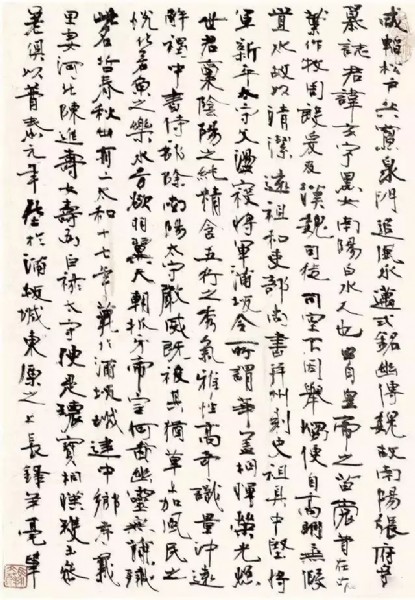 咸韜松戶共寂泉門追風永邁式銘幽傳魏故南陽張府君
墓誌君諱玄字黑女南陽白水人也出自皇帝之苗裔昔在中
葉作牧周殷爰及漢魏司徒司空不因舉燭便自高明無假
置水故以清潔遠祖和吏部尚書并州刺史祖具中堅將
軍新平太守父盪寇將軍蒲坂令所謂華蓋相暉榮光照
世君稟陰陽之純精含五行之秀氣雅性高奇識量沖遠
解褐中書侍郎除南陽太守嚴威既被其猶草加風民之
悅化若魚之樂水方欲羽翼天朝抓牙帝室何啚幽靈無簡殲
此名哲春秋卅有二太和十七年薨於蒲坂城建中鄉孝義
里妻河北陳進壽女壽為巨祿太守便是瓌寶相暎瓊玉參
差俱以普泰元年葬於蒲坂城東原之上長鋒羊毫